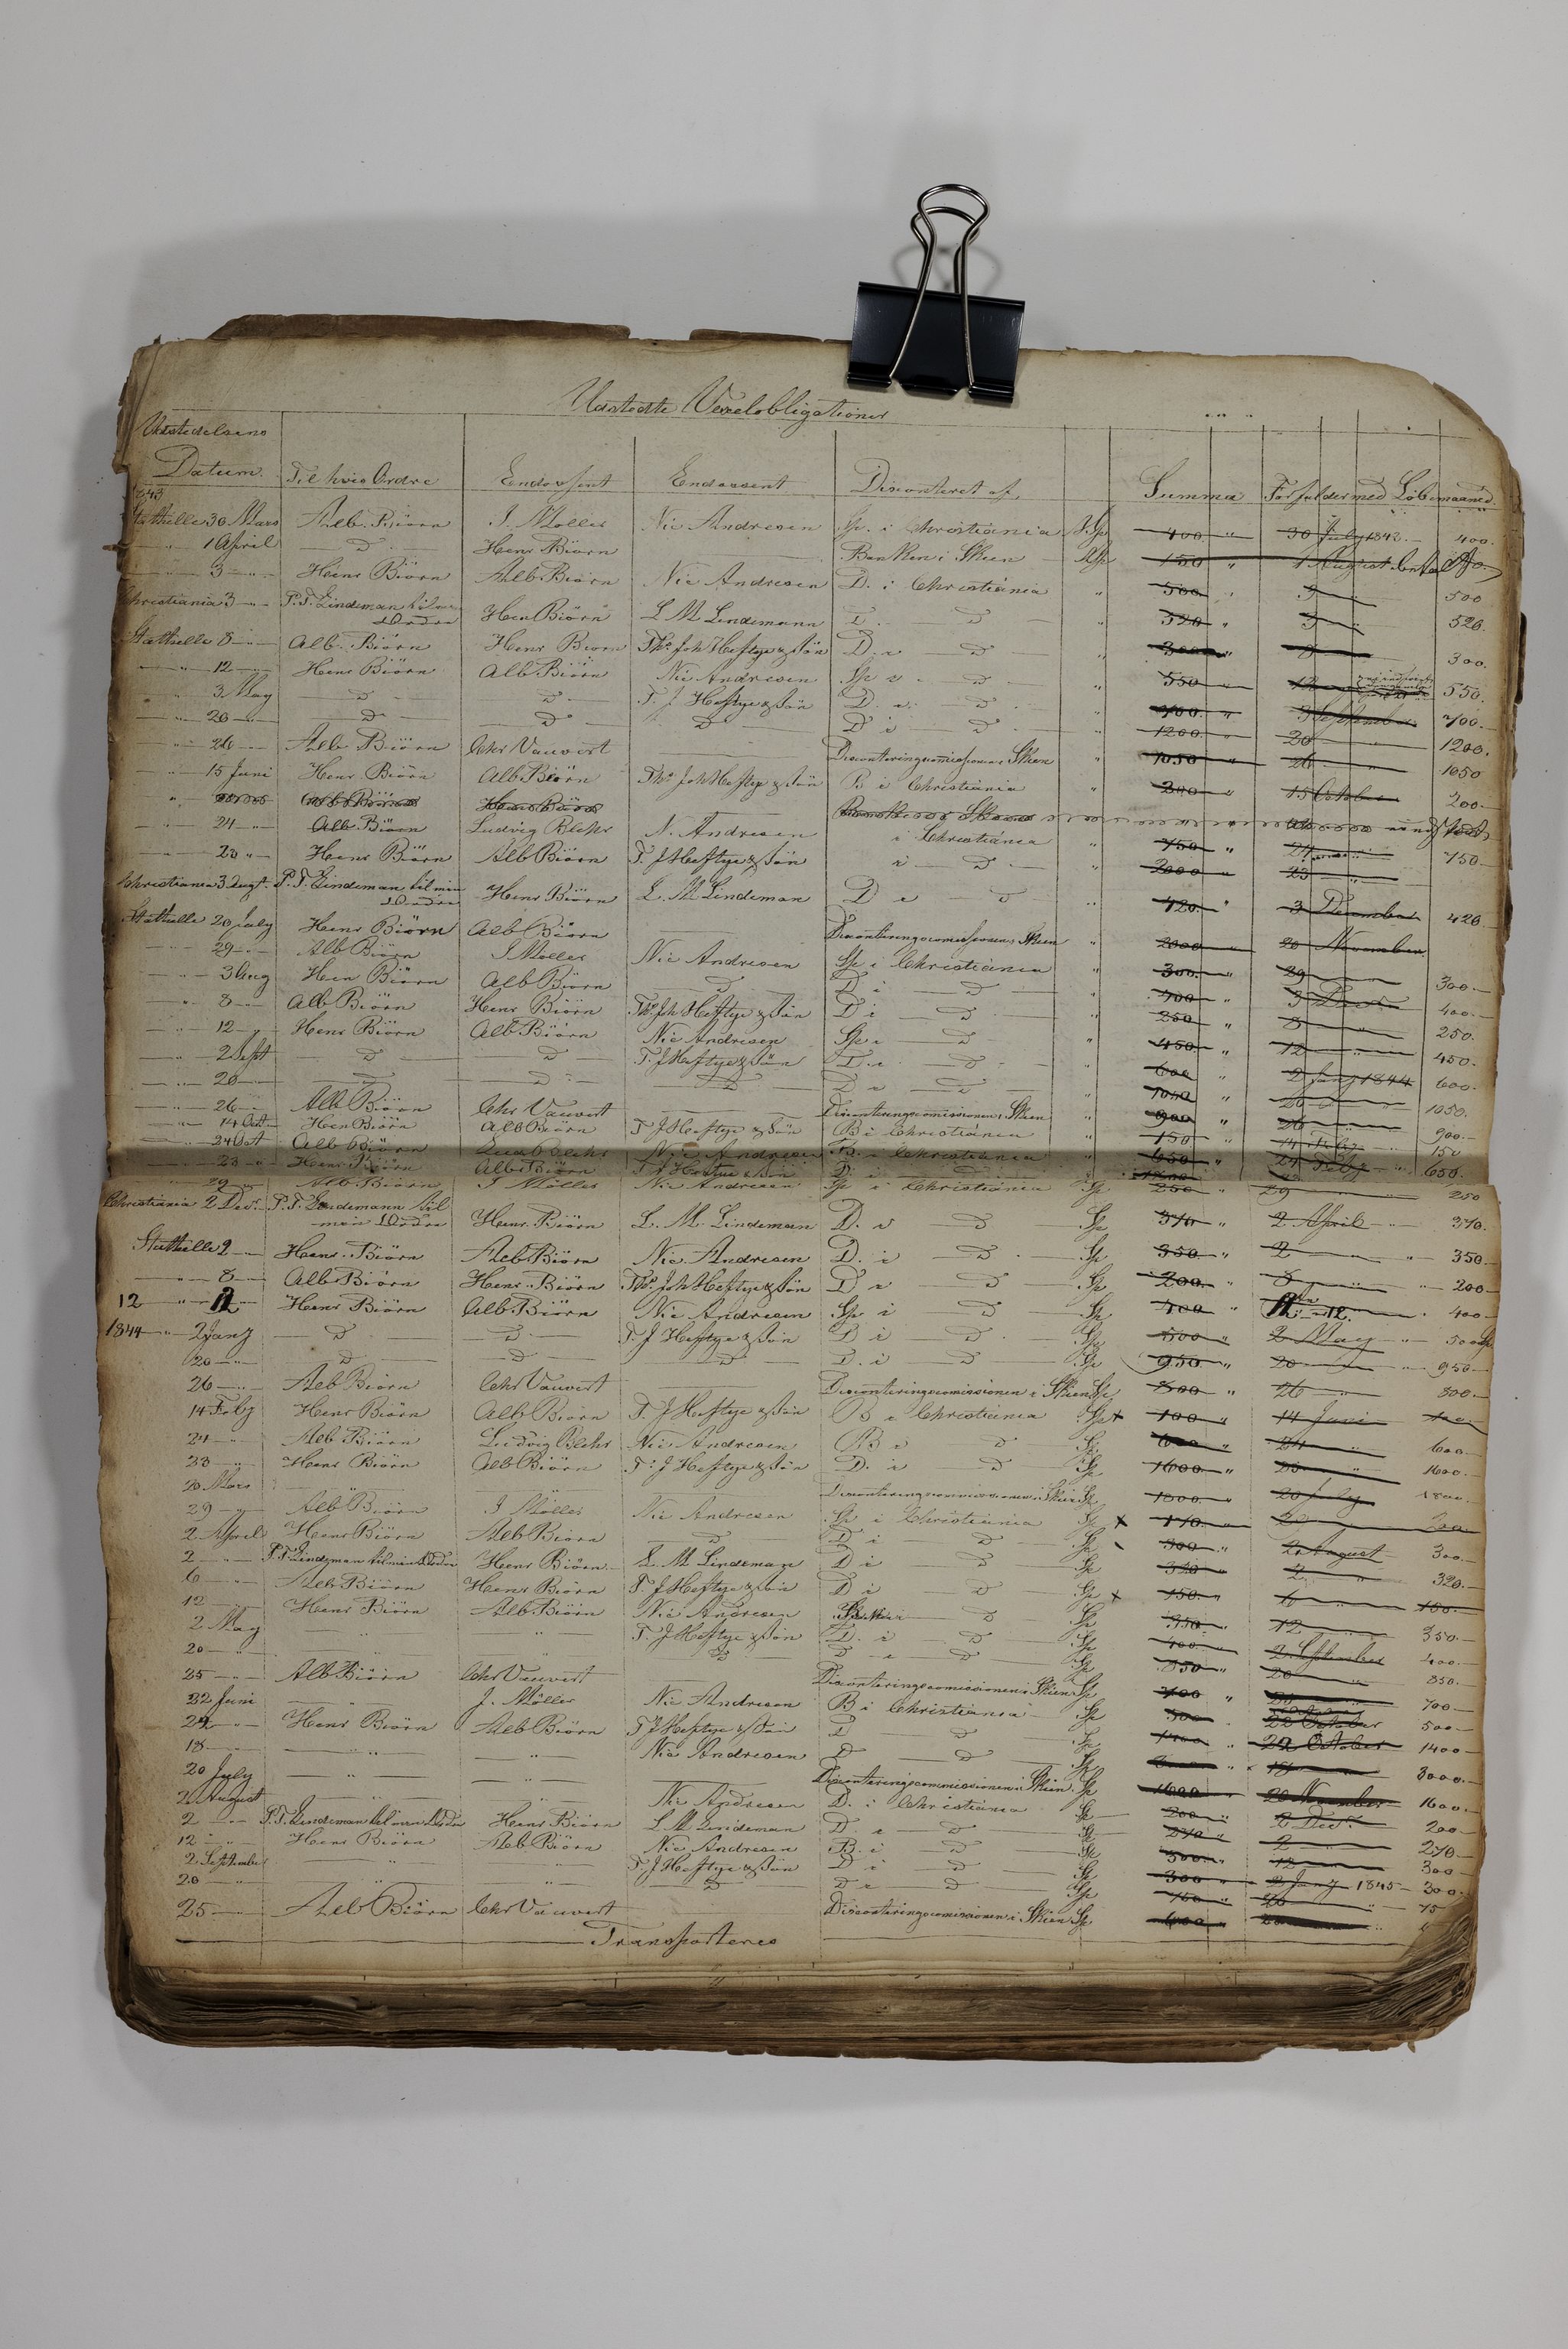 Udstedte Vexelobligationer
Udstedelsens
Datum. Til hvis Ordre Endossent Endossent Disconteret af Summa Forfalder med Löbemaaned
1843
Stathelle 30 Mars Alb. Biörn J. Möller Nic Andresen Sp. i Christiania Sp 400 " 30 July 1843 400.
" 1 April D Henr Biörn Banken i Skien Sp 150 " 1 August betalt
" 3 " Henr Biörn Alb. Biörn Nic Andresen D. i Christiania " 500 3 " 500
Christiania 3 " P. T. Lindeman til min Ordre Henr Biörn L M Lindemann D. D " 520 " 3 " 520.
Stathelle 8 " Alb. Biörn Henr Biörn Ths Joh Heftye & Sön D. i D " 300 8 300.
" 12 Henr Biörn Alb Biörn Nic Andresen Sp i D " 550 " 12 550.
" 3 May D D T. J Heftye & Sön D. i D " 700 " 3 September 700
" 20 D D D D i D 1200 " 20 1200.
" 26 Alb Biörn Chr Vauvert Disconteringscomissionen i Skien 1050 " 26 1050
" 15 Juni Henr. Biörn Alb Biörn Ths Joh Heftye & Sön B i Christiania " 200 " 15 October 200
Alb Biörn Henr Biörn
" 24 " Alb. Biörn Ludvig Blehr N. Andresen i Christiania " 750 " 24 750
" 23 " Henr Biörn Alb Biörn T. J Heftye & Sön i D " 2000 " 23
Christiania 3 Augt. P. T. Lindeman til min Ordre Henr Biörn L. M Lindeman D i D " 420. " 3 December 420
Stathelle 20 July Henr Biörn Alb Biörn Disconteringscomissionen i Skien " 2000 20 November
29 Alb Biörn J Möller Nic Andresen Sp i Christiania " 300. " 29 300
" 3 Aug Hen Biörn Alb Biörn D D i D " 400 3 Decr 400
" 8 Alb Biörn Henr Biörn Ths Joh Heftye & Sön D i D " 250 " 8 250.
" 12 " Henr Biörn Alb Biörn Nic Andresen Sp i D " 450. " 12 450.
" 2 Sept D D T. J Heftye & Sön D i D 600 " 2 Jany 1844 600
" 20 D D D D i D 1050 20 1050.
" 26 Alb Biörn Chr Vauvert Disconteringscomissionen i Skien 900 " 26 900
" 14 Oct Hen Biörn Alb Biörn T J Heftye & Sön B i Christiania " 150 " 14 Feby 150
" 24 Oct Alb Biörn Lud Blehr N. Andresen B. i Christiania " 650 " 24 Feby 650.
" 23 Henr Biörn Alb Biörn T J Heftye & Sön D. i D
29 Alb. Biörn J Möller Nic Andresen Sp i Christiania Sp 250 29 250
Christiania 2 Decr. P. T. Lindemann til min Ordre Henr. Biörn L. M. Lindeman D. i D Sp 370 " 2 April 370.
Stathelle 2 " Henr. Biörn Alb Biörn Nic Andresen D. i D Sp 350 " 2 " 350
" 8 Alb Biörn Henr. Biörn Ths Joh Heftye & Sön D i D Sp 200. " 8 200
12 " 12 Henr Biörn Alb. Biörn Nic Andresen Sp i D Sp 400 " 12 400
1844 " 2 Jany D D T. J Heftye & Sön D i D Sp 500 " 2 May 500
20 " D D D D. i D Sp 950 " 20 950
26 Alb Biörn Chr Vauvert Disconteringscomissionen i Skien Sp 800 " 26 800
14 Feby Henr Biörn Alb Biörn T. J Heftye & Sön B i Christiania Sp x 100 " 14 Juni 100
24 " Alb Biörn Ludvig Blehr Nic Andresen B i D Sp 600 " 24 600
23 " Henr Biörn Alb Biörn T. J Heftye & Sön D. i D Sp 1600 " 23 1600
20 Mars Disconteringscommissionen i Skien Sp 1800 " 20 July 1800
29 " Alb Biörn J Möller Nic Andresen Sp i Christiania Sp x 170. " 29
2 April Henr Biörn Alb Biörn D D i D Sp 300 " 2 August 300
2 P. T. Lindeman til min Ordre Henr Biörn L. M Lindeman D i D Sp 320 " 2 320.
6 " Alb Biörn Henr Biörn T. J Heftye & Sön D i D Sp x 150. " 6 150.
12 Henr Biörn Alb. Biörn Nic Andresen D Sp 350 " 12 350
2 May " " T. J Heftye & Sön D. i D Sp 400 " 2 September 400
20 " D D i D Sp 850 " 20 850.
25 " Alb Biörn Chr Vauvert Disconteringscomissionen i Skien Sp 700 " 700
22 Juni J. Möller Nic Andresen B i Christiania Sp 500 22 October 500
24 " Henr Biörn Alb Biörn T J Heftye & Sön D D Sp 1400 " 24 October 1400
18 " " Nic Andresen D D Sp 18 3000
20 July " " Disconteringscommissionen i Skien Sp 1600 " 20 November 1600
2 August " " Nic Andresen D. i Christiania Sp 200 " 2 Decr. 200
2 " P. T. Lindeman til min Ordre Henr Biörn L M Lindeman D. i D Sp 270 " 2 270
12 " Henr Biörn Alb Biörn Nic Andresen B. i D Sp 300 " 12 300
2 September " " T. J Heftye & Sön D i D Sp 300 " 2 Jany 1845 300
20 " " " D D i D Sp 750 " 20 75
25 Alb Biörn Chr Vauvert Disconteringscomissionen i Skien Sp 600 "
Transporteres